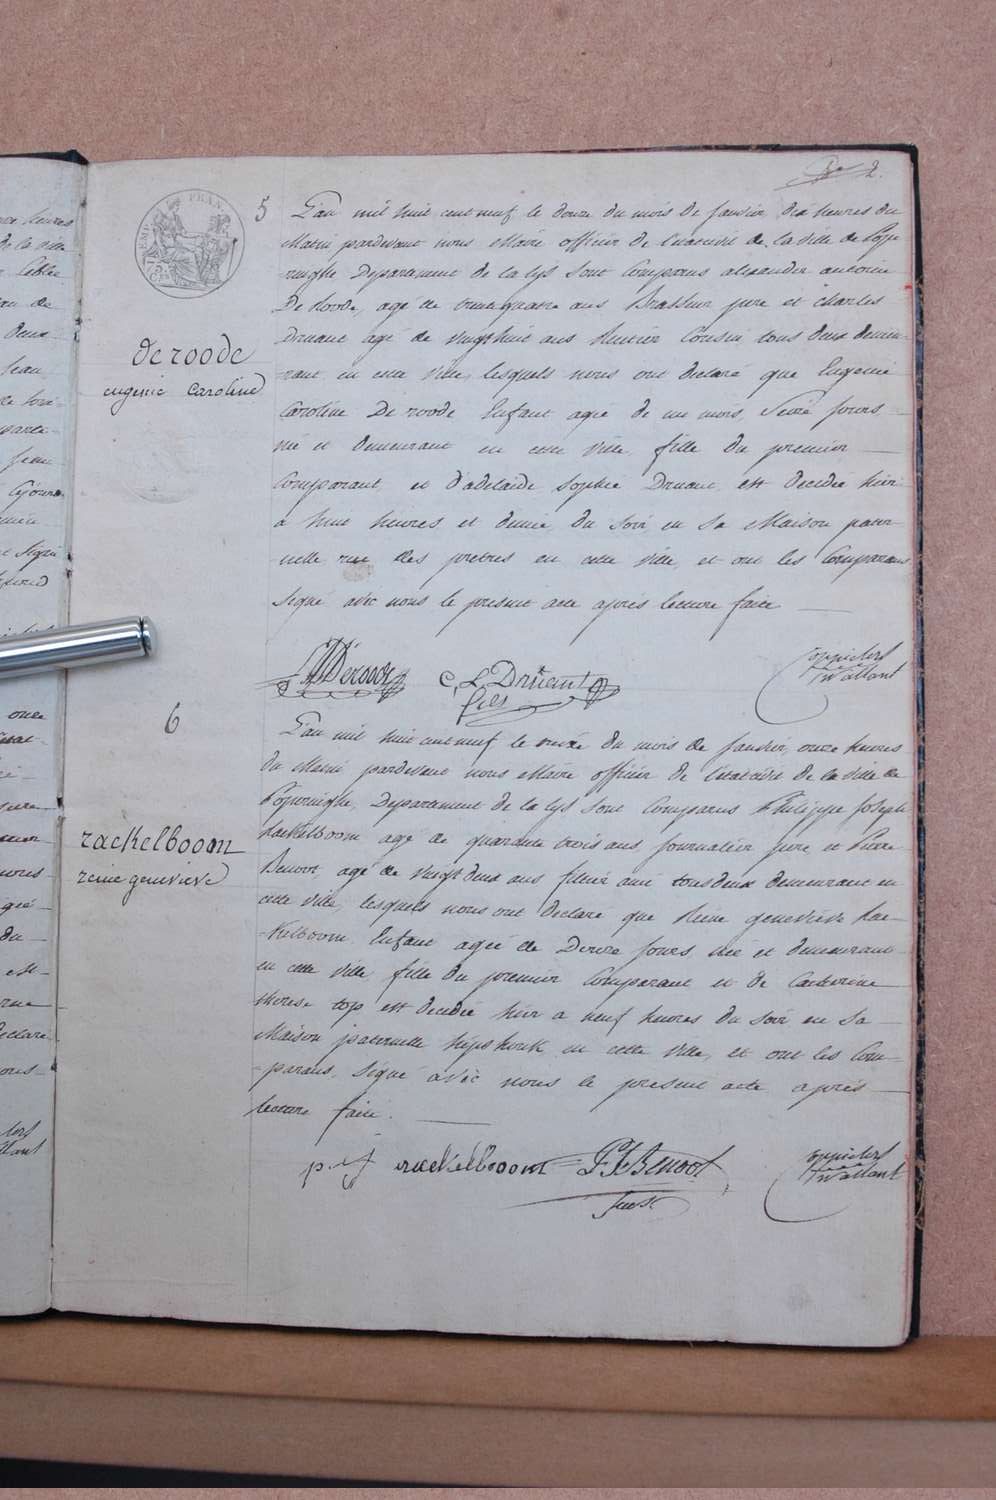 2.
EMPIRE FRAN
5
L'an mil huit cent neuf le douze du mois de Janvier, dix heures du
Matin pardevant nous Maire officier de l'état civil de la ville de Pope
ringhe Departement de la lys sont Comparus alexander antoine
De Roode, agé de trente quatre ans Brasseur pere et charles
Druant agé de vingt huit ans Rentier Cousin tous deux demeu-
rant en cette ville, lesquels nous ont declaré que Eugenie
Caroline De roode Enfant agée de un mois, Seize jours
née et demeurant en cette ville, fille du premier
Comparant, et d'adelaide Sophie Druant, est decedée hier
a huit heures et demie du soir en sa Maison pater-
nelle rue des pretres en cette ville, et ont les Comparans
signé avec nous le present acte après lecture faite
deroode
eugenie caroline
Deroode C. L. Druant
fils
Coppieters
T'Wallant
6
L'an mil huit cent neuf le treize du mois de Janvier, onze heures
du Matin pardevant nous Maire officier de l'état civil de la ville de
Poperinghe, Departement de la lys sont Comparus Philippe Joseph
Rackelboom agé de quarante trois ans journalier pere et Pierre
Benoot agé de vingt deux ans ami tous deux demeurant en
cette ville, lesquels nous ont declaré que Reine genevieve Rac-
-kelboom Enfant agée de Douze jours, née et demeurant
en cette ville, fille du premier Comparant et de Catherine
therese top est decedée hier a neuf heures du soir en sa
Maison paternelle en cette ville, et ont les Com-
-parans, signé avec nous le present acte après
lecture faite.
rackelboom
reine genevieve
p j rackelboom P. J. Benoot
Coppieters
T'Wallant